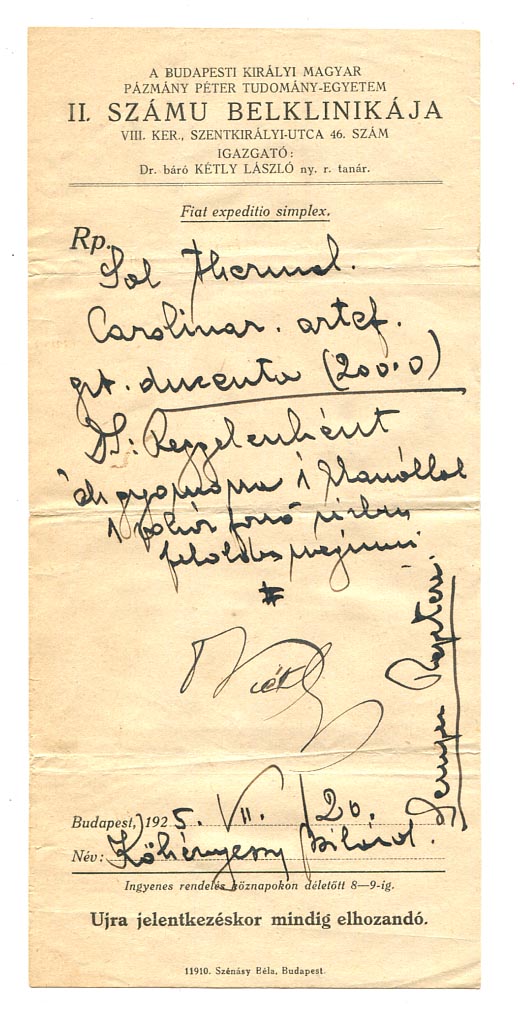 A BUDAPESTI KIRÁLYI MAGYAR
PÁZMÁNY PÉTER TUDOMÁNY-EGYETEM
II. SZÁMU BELKLINIKÁJA
VIII. KER., SZENTKIRÁLYI-UTCA 46. SZÁM
IGAZGATÓ:
Dr. báró KÉTLY LÁSZLÓ ny. r. tanár.
Fiat expeditio simplex.
Rp.
Sal thermal.
Carolinar. artef.
gr. ducenta (200.0)
DS: Reggelenként
éh gyomorra 1 kanállal
1 pohár forró vízben
feloldva meginni
Kétly
Budapest, 1925. VII. 20.
Név:
Ingyenes rendelés köznapokon déletőtt 8—9-ig.
Ujra jelentkezéskor mindig elhozandó.
11910. Szénásy Béla, Budapest.